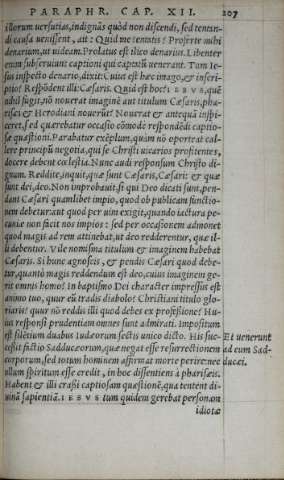 PARAPHR. CAP. XII. 207
illorum uersutias, indignãs quòd non discendi, sed tentan-
di causa uenissent, ait: Quid me tentatis? Proferte mihi
denarium, ut uideam. Prolatus est ilico denarius. Libenter
enim subseruiunt captioni qui captum uenerant. Tum Ie-
sus inspecto denario, dixit: Cuius est hæc imago, & inscri-
ptio? Respõdent illi: Cæsaris. Quid est hoc? IESVS, quẽ
nihil fugit, nõ nouerat imaginẽ aut titulum Cæsaris, pha-
risæi & Herodiani nouerũt? Nouerat & antequã inspi-
ceret, sed quærebatur occasio cõmodè respondẽdi captio-
sæ quæstioni. Parabatur exẽplum, quàm nõ oporteat cal-
lere principũ negotia, qui se Christi uicarios profitentes,
docere debent cœlestia. Nunc audi responsum Christo di-
gnum. Reddite, inquit, quæ sunt Cæsaris, Cæsari: & quæ
sunt dei, deo. Non improbauit si qui Deo dicati sunt, pen-
dant Cæsari quamlibet impio, quod ob publicam functio-
nem debetur aut quod per uim exigit, quando iactura pe-
cuniæ non facit nos impios: sed per occasionem admonet
quod magis ad rem attinebat, ut deo redderentur, quæ il-
li debentur. Vile nomisma titulum & imaginem habebat
Cæsaris. Si hunc agnoscis, & pendis Cæsari quod debe-
tur, quantò magis reddendum est deo, cuius imaginem ge-
rit omnis homo? In baptismo Dei character impressus est
animo tuo, quur eũ tradis diabolo? Christiani titulo glo-
riaris? quur nõ reddis illi quod debes ex professione? Hu-
ius responsi prudentiam omnes sunt admirati. Impositum
est silẽtium duabus Iudæorum sectis unico dicto. His suc-
cessit factio Sadducæorum, quæ negat esse resurrectionem
corporum, sed totum hominem affirmat morte perire: nec
ullum spiritum esse credit, in hoc dissentiens à pharisæis.
Habent & illi crassi captiosam quæstionẽ, qua tentent di-
uinã sapientiã. IESVS tum quidem gerebat personam
idiotæ
Et uenerunt
ad eum Sad-
ducæi.